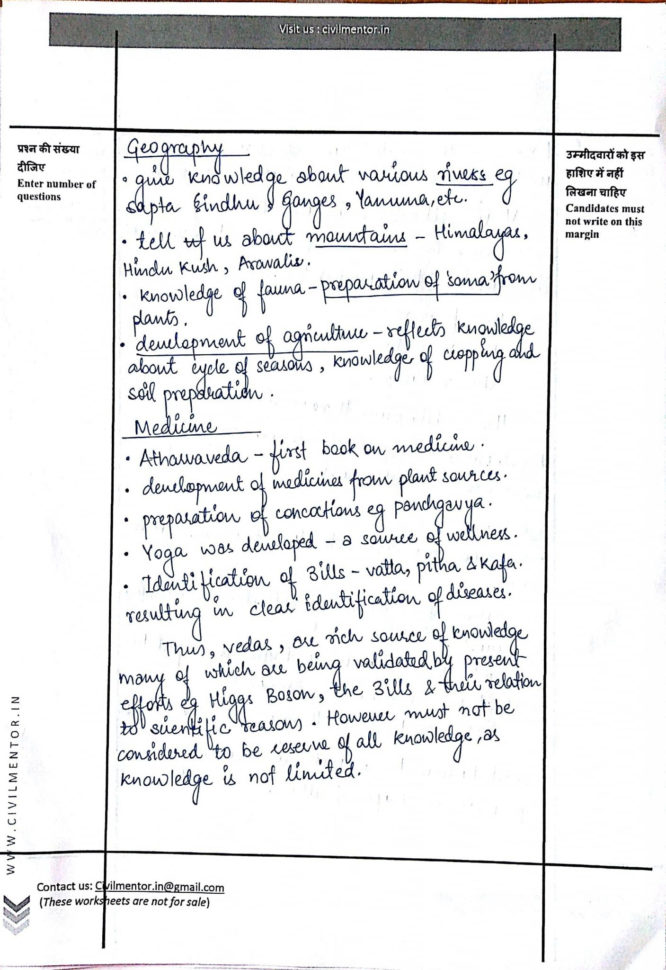 Visit us : civilmentor.in
प्रश्न की संख्या
दीजिए
Enter number of
questions
उम्मीदवारों को इस
हाशिए में नहीं
लिखना चाहिए
Candidates must
not write on this
margin
Geography
• give knowledge about various rivers eg
Sapta Sindhu, Ganges, Yamuna, etc.
• tell us about mountains – Himalayas,
Hindu Kush, Aravalis.
• knowledge of fauna – preparation of 'soma' from
plants.
• development of agriculture – reflects knowledge
about cycle of seasons, knowledge of cropping and
soil preparation.
Medicine
• Atharvaveda – first book on medicine.
• development of medicines from plant sources.
• preparation of concoctions eg panchgavya.
• Yoga was developed – a source of wellness.
• Identification of 3ills – vatta, pitha & kafa.
resulting in clear identification of diseases.
Thus, vedas, are rich source of knowledge
many of which are being validated by present
efforts eg Higgs Boson, the 3ills & their relation
to scientific reasons. However must not be
considered to be reserve of all knowledge, as
knowledge is not limited.
WWW.CIVILMENTOR.IN
Contact us: Civilmentor.in@gmail.com
(These worksheets are not for sale)